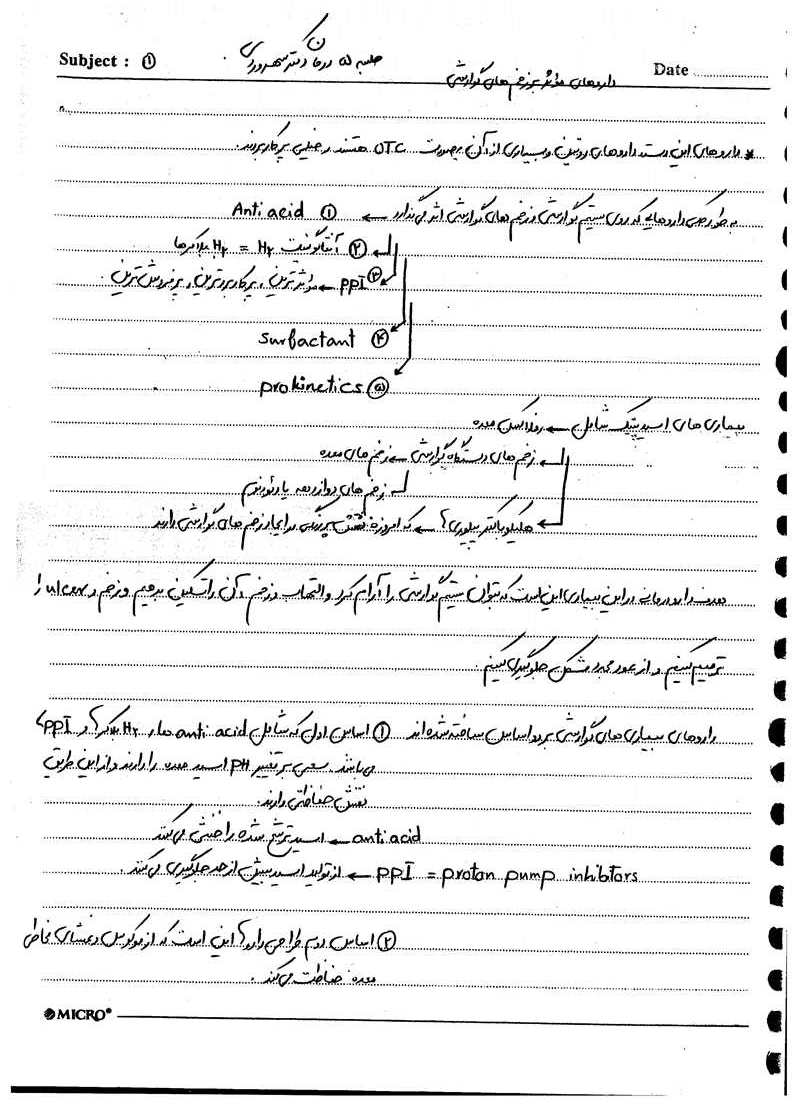 Subject : ①
جلسه ۵ درمان دکتر سهرورد
Date
داروهای موثر بر زخم های گوارشی
* داروهای این دسته داروهای روتین و بسیاری از آن بصورت OTC هستند و خیلی پرکاربردند.
به طور کلی داروهایی که روی سیستم گوارشی و زخم های گوارشی اثر می گذارد ← ① Anti acid
② آنتاگونیست H₂ = H₂ بلاکرها
③ PPI ← موثرترین، پرکاربردترین، پرفروش ترین.
④ surfactant
⑤ prokinetics
بیماری های اسید پپتیک شامل ← رفلاکس معده
زخم های دستگاه گوارشی ← زخم های معده
زخم های دوازدهه یا دئودنوم
هلیکوباکتر پیلوری ← که امروزه نقش پررنگی در ایجاد زخم های گوارشی دارند
هدف دارودرمانی در این بیماری این است که بتوان سیستم گوارشی را آرام کرد و التهاب و زخم آن را تسکین بدهیم و زخم و ulcer را
ترمیم کنیم و از عود مجدد مشکل جلوگیری کنیم.
داروهای بیماری های گوارشی بر دو اساس ساخته شده اند ① اساس اول که شامل anti acid ها، H₂ بلاکر و PPI
می باشد. سعی بر تغییر PH اسید معده را دارند و از این طریق
نقش حفاظتی دارند.
anti acid ← اسید ترشح شده را خنثی می کند
PPI = protan pump inhibtors ← از تولید اسید بیش از حد جلوگیری می کند.
② اساس دوم طراحی دارو این است که از موکوس و غشای مخاطی
معده حفاظت می کند.
MICRO®